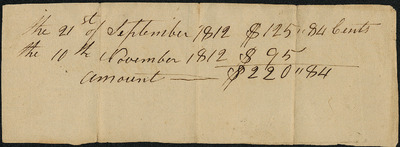 the 21st of September 1812 $125 " 84 Cents
the 10th November 1812 $ 95
amount — $220 " 84